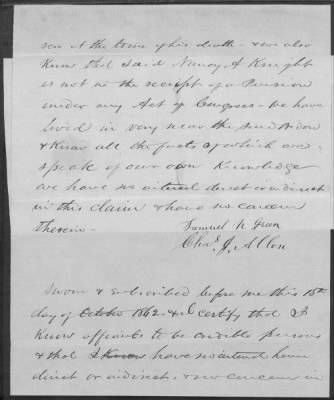 ren at the time of his death - & we also
Know that said Nancy A Knight
is not in the receipt of a Pension
under any Act of Congress - we have
lived in very near the said Widow
& Know all the facts of which we
speak of our own Knowledge
we have no interest direct or indirect
in this claim & have no concern
therein -
Samuel N Green
Chas. J. Allon
Sworn & subscribed before me this 15th
day of October 1862 - & I certify that I
Know affiants to be credible persons
& that I Know have no interest herein
direct or indirect, & no concern in